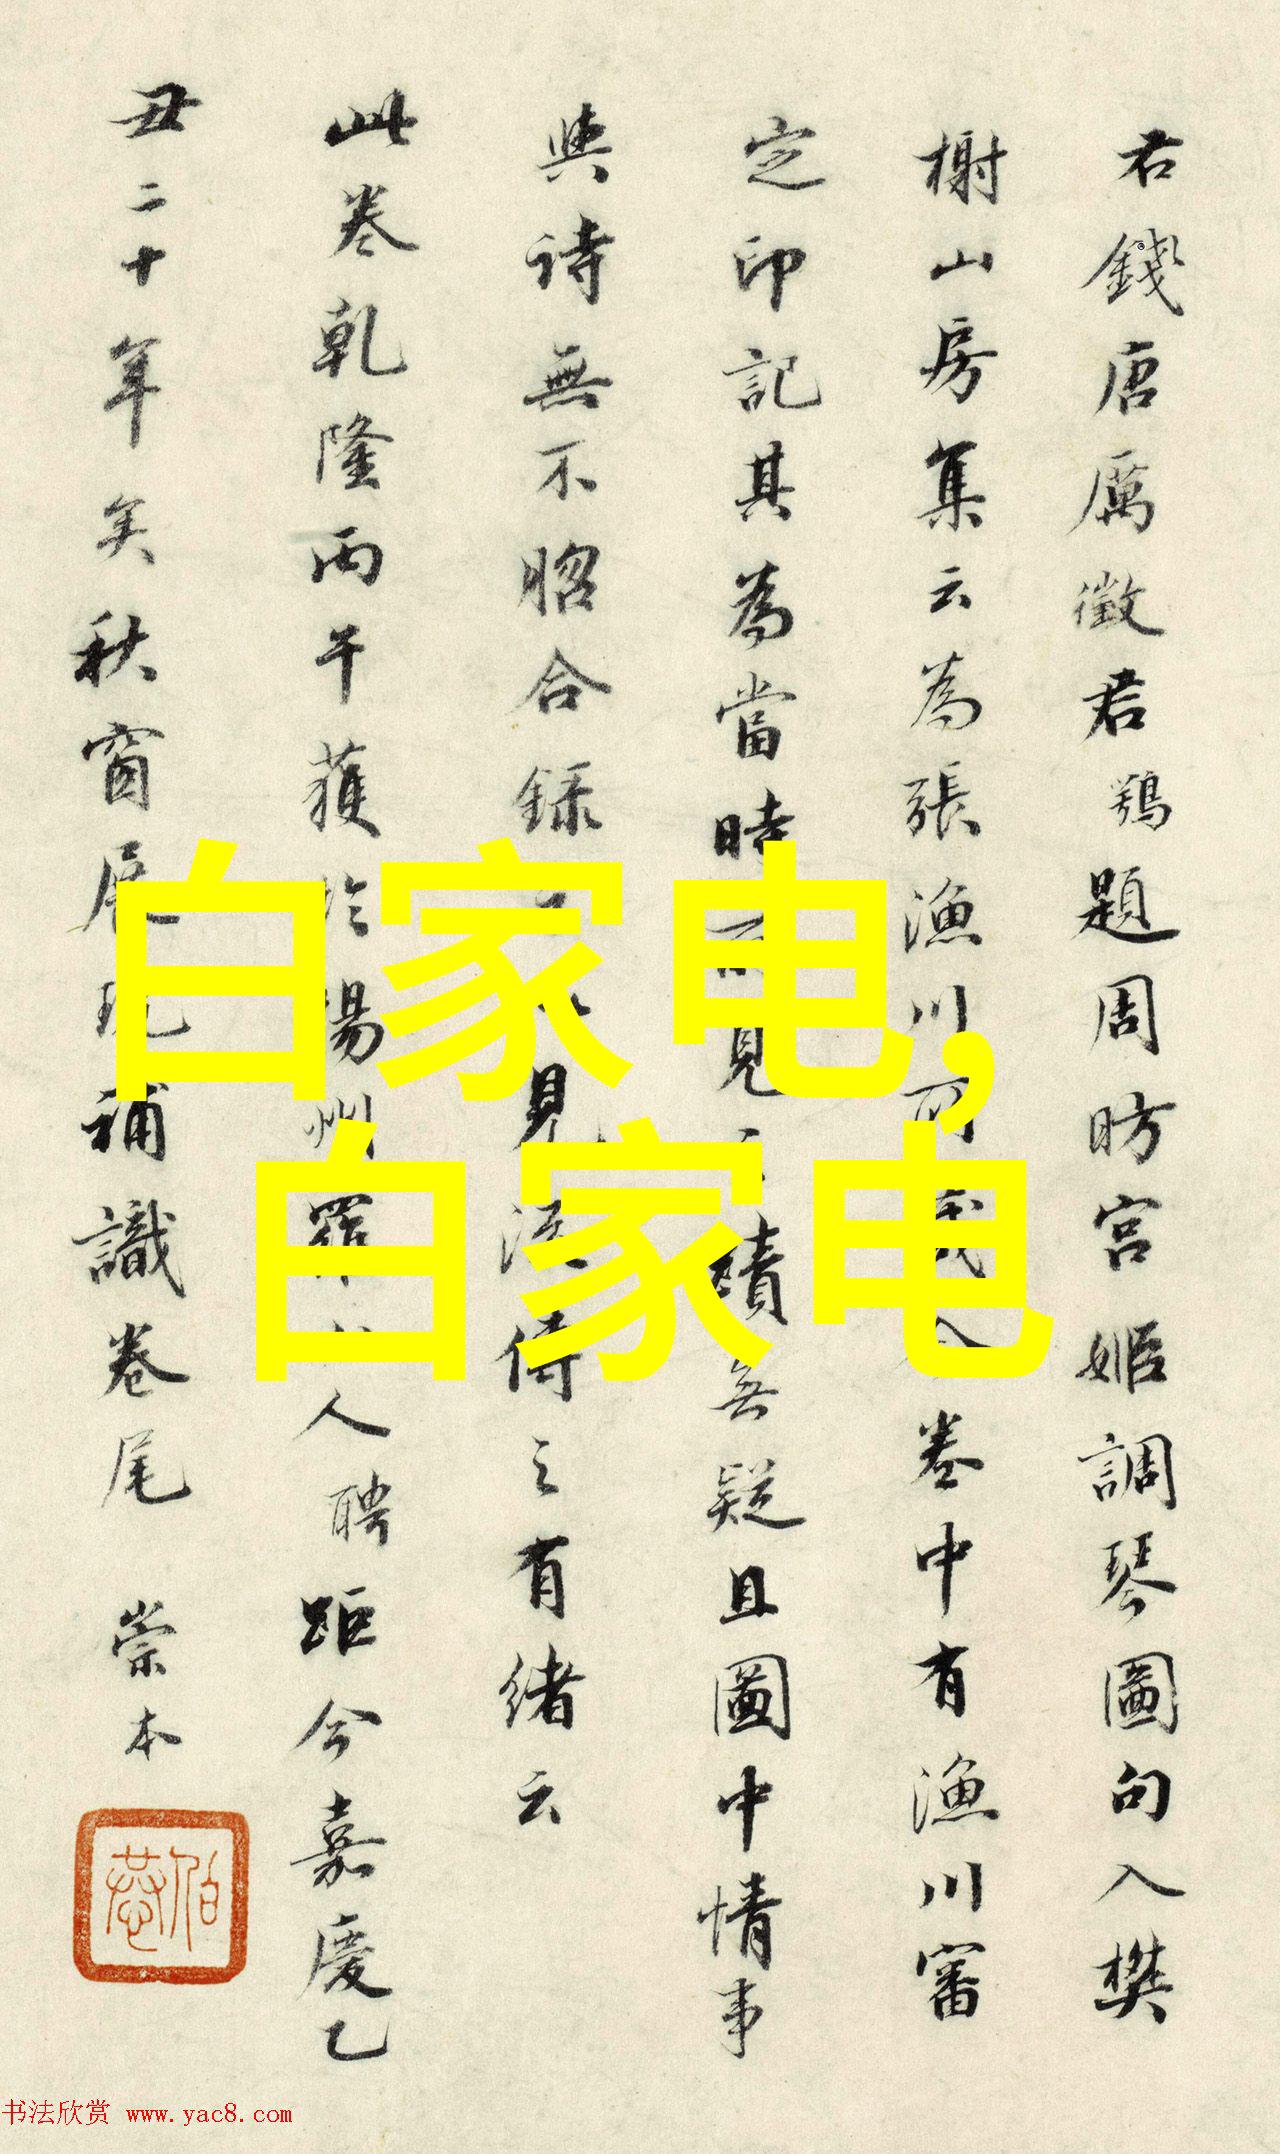 君錢唐厲徵君鶚題周昉宮姬調琴圖句入樊
榭山房集云為張漁川所藏今卷中有漁川審
定印記其為當時所見之蹟無疑且圖中情事
與詩無不吻合錄見流傳之有緒云
此卷乾隆丙午獲於揚州羅山人聘距今嘉慶乙
丑二十年矣秋窗展玩補識卷尾 崇本
白家电,
白家电
书法欣赏 www.yac8.com